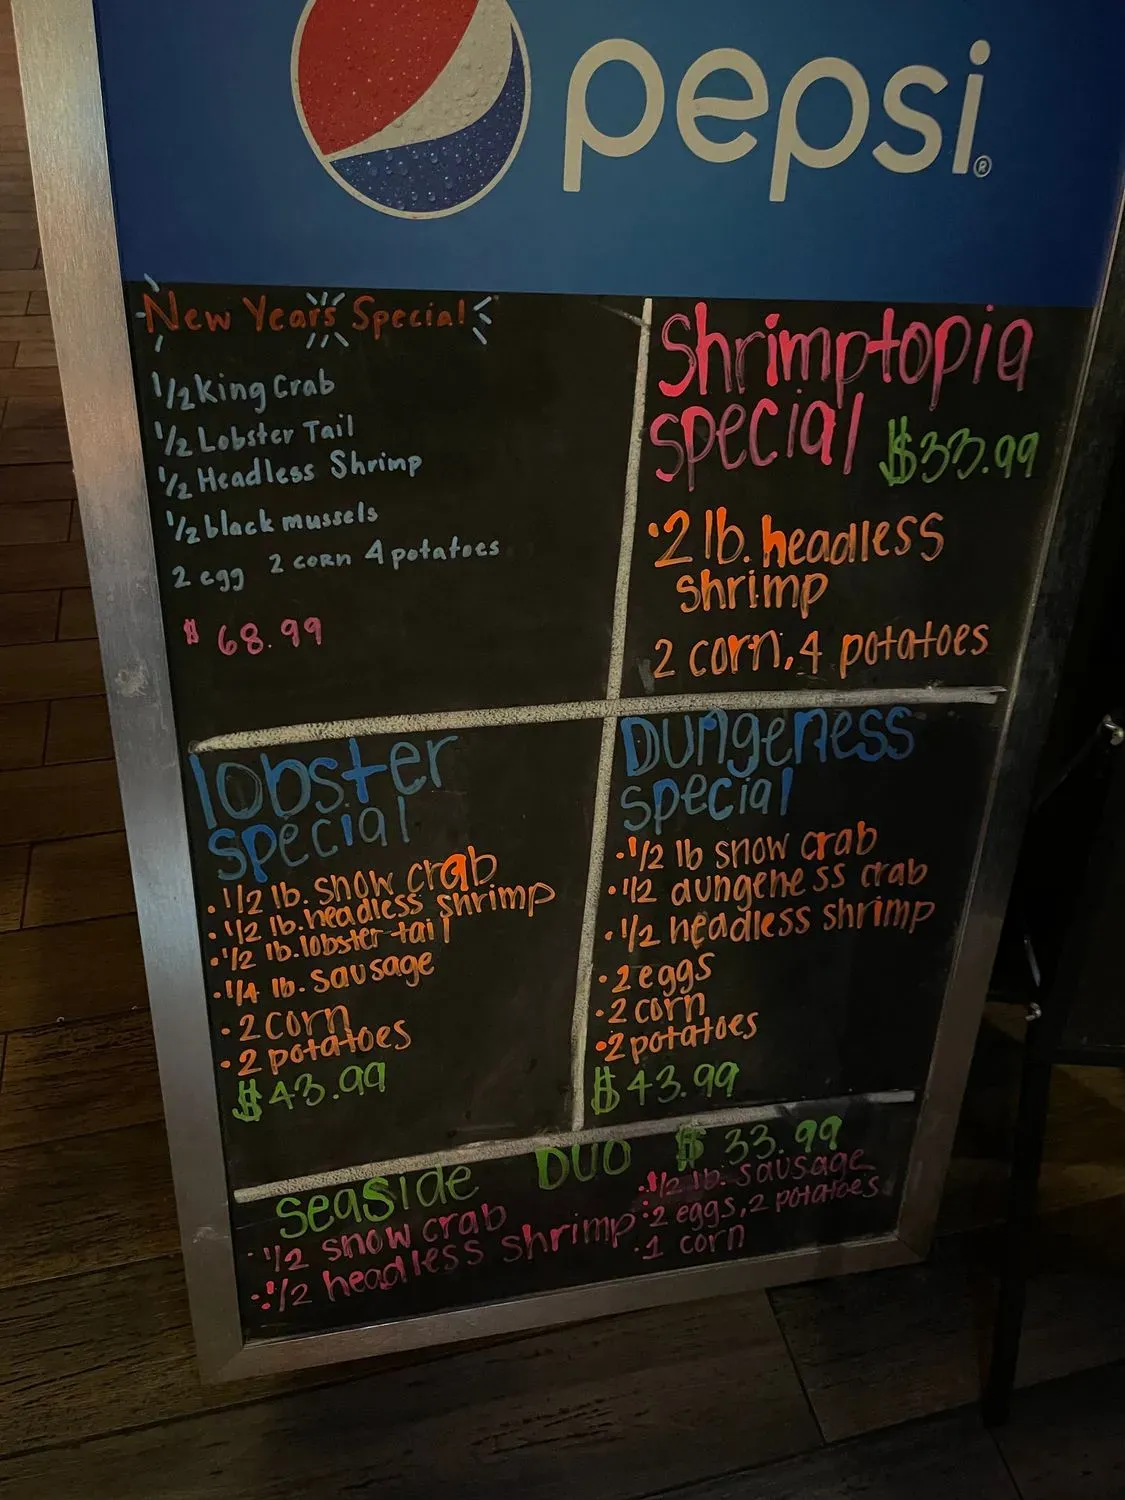 pepsi®
New Year's Special
1/2 King Crab
1/2 Lobster Tail
1/2 Headless Shrimp
1/2 black mussels
2 egg 2 corn 4 potatoes
$ 68.99
Shrimptopia
special $33.99
•2 lb. headless
shrimp
2 corn, 4 potatoes
lobster
special
•1/2 lb. snow crab
•1/2 lb. headless shrimp
•1/2 lb. lobster tail
•1/4 lb. sausage
•2 corn
•2 potatoes
$43.99
Dungeness
special
•1/2 lb snow crab
•1/2 dungeness crab
•1/2 headless shrimp
•2 eggs
•2 corn
•2 potatoes
$43.99
Seaside Duo $33.99
•1/2 snow crab
•1/2 headless shrimp
•1/2 lb. sausage
•2 eggs, 2 potatoes
•1 corn